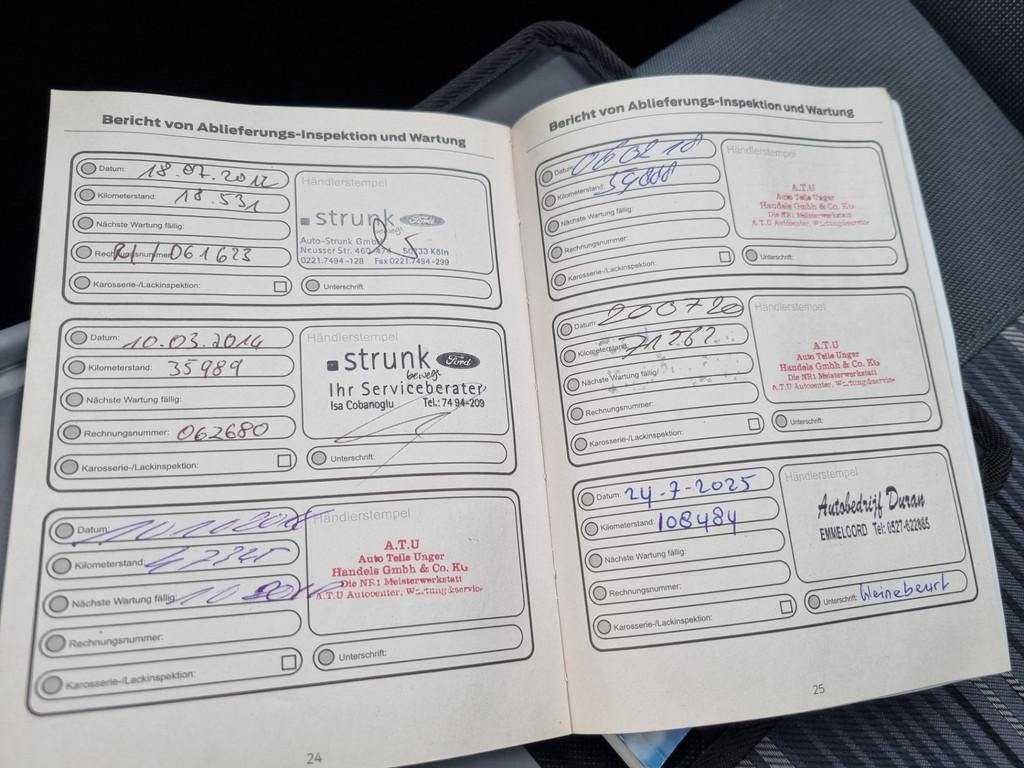 Bericht von Ablieferungs-Inspektion und Wartung
Datum: 18.07.2012
Kilometerstand: 18.531
Nächste Wartung fällig:
Rechnungsnummer: 061623
Karosserie-/Lackinspektion:
Händlerstempel
strunk Ford
bewegt
Auto-Strunk GmbH
Neusser Str. 460-474 50733 Köln
0221.7494-128 Fax 0221.7494-299
Unterschrift:
Datum: 10.03.2014
Kilometerstand: 35989
Nächste Wartung fällig:
Rechnungsnummer: 062680
Karosserie-/Lackinspektion:
strunk Ford
bewegt
Ihr Serviceberater
Isa Cobanoglu Tel.: 74 94-209
Unterschrift:
Datum:
Kilometerstand:
Nächste Wartung fällig:
Rechnungsnummer:
Karosserie-/Lackinspektion:
Händlerstempel
A.T.U
Auto Teile Unger
Handels GmbH & Co. KG
Die NR1 Meisterwerkstatt
A.T.U Autocenter, Wartung&service
Unterschrift:
24
Bericht von Ablieferungs-Inspektion und Wartung
Datum: 060218
Kilometerstand: 59888
Nächste Wartung fällig:
Rechnungsnummer:
Karosserie-/Lackinspektion:
Händlerstempel
A.T.U
Auto Teile Unger
Handels GmbH & Co. KG
Die NR1 Meisterwerkstatt
A.T.U Autocenter, Wartung&service
Unterschrift:
Datum: 200720
Kilometerstand: 71262
Nächste Wartung fällig:
Rechnungsnummer:
Karosserie-/Lackinspektion:
Händlerstempel
A.T.U
Auto Teile Unger
Handels GmbH & Co. KG
Die NR1 Meisterwerkstatt
A.T.U Autocenter, Wartung&service
Unterschrift:
Datum: 24-7-2025
Kilometerstand: 108484
Nächste Wartung fällig:
Rechnungsnummer:
Karosserie-/Lackinspektion:
Händlerstempel
Autobedrijf Duran
EMMELOORD Tel: 0527-622885
Unterschrift: kleine beurt
25